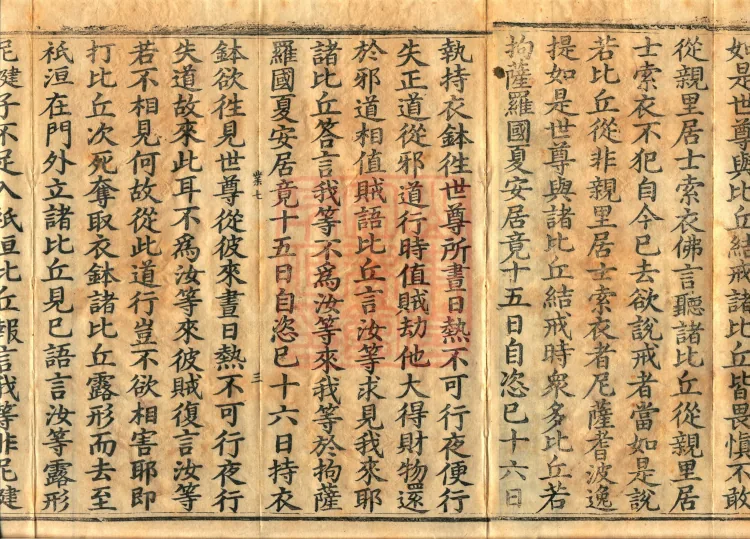 如是世尊與比丘結戒諸比丘皆畏慎不敢
從親里居士索衣佛言聽諸比丘從親里居
士索衣不犯自今已去欲說戒者當如是說
若比丘從非親里居士索衣者尼薩耆波逸
提如是世尊與諸比丘結戒時衆多比丘若
拘薩羅國夏安居竟十五日自恣已十六日
執持衣鉢徃世尊所晝日熱不可行夜便行
失正道從邪道行時值賊劫他大得財物還
於邪道相值賊語比丘言汝等求見我來耶
諸比丘答言我等不爲汝等來我等於拘薩
羅國夏安居竟十五日自恣已十六日持衣
業七 三
鉢欲徃見世尊從彼來晝日熱不可行夜行
失道故來此耳不爲汝等來彼賊復言汝等
若不相見何故從此道行豈不欲相害耶即
打比丘次死奪取衣鉢諸比丘露形而去至
祇洹在門外立諸比丘見已語言汝等露形
尼揵子不足入祇洹比丘報言我等非尼揵